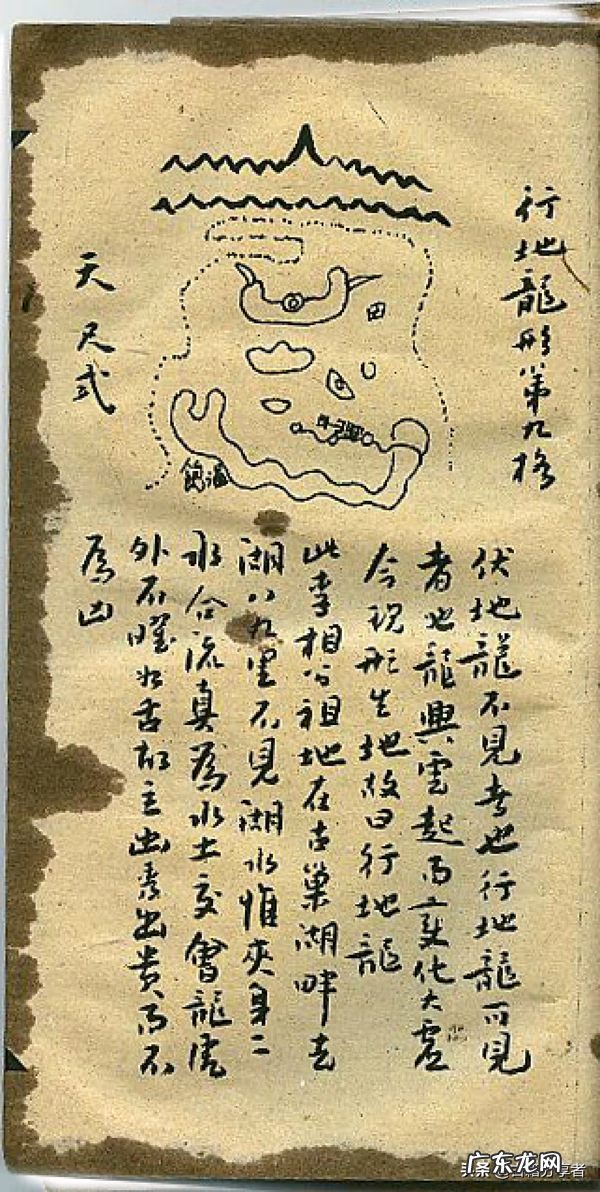 行地龍形第九格
天尺式
田
伏地龍不見者也行地龍可見
者也龍興雲起而變化大虛
今現形生地故曰行地龍
此李相公祖地在古巢湖畔去
湖八九里不見湖水惟夾身二
水合流真為水土交會龍虎
外不曜如舌故主出秀出貴而不
為凶
头条 @古籍分享者
广东龙网